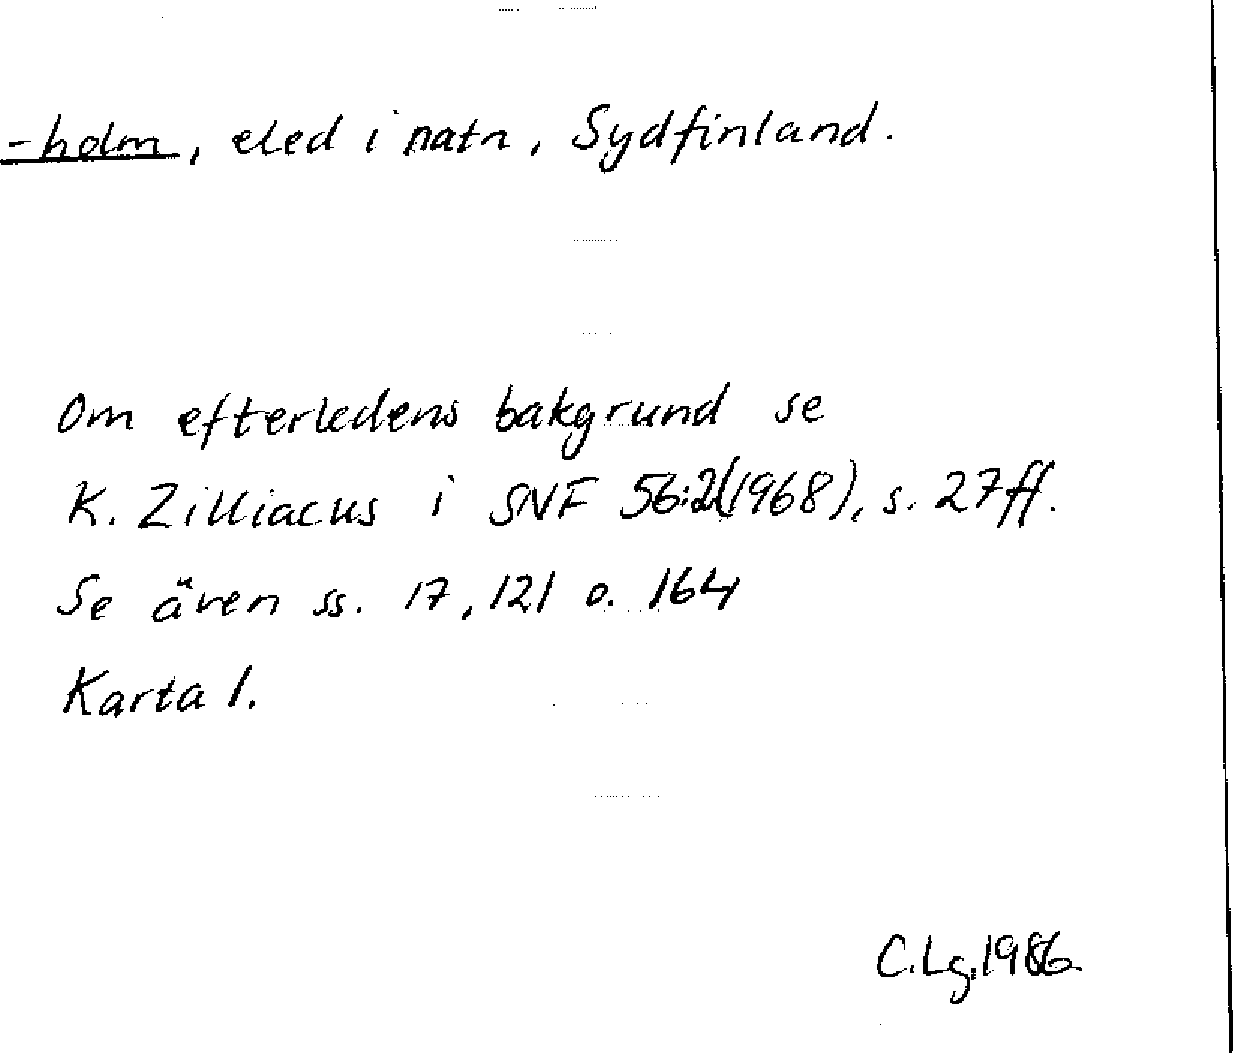 -holm, eled i natn, Sydfinland.
Om efterledens bakgrund se
K. Zilliacus i SNF 56:2(1968), s. 27ff.
Se även ss. 17, 121 o. 164
Karta 1.
C.Lg.1986